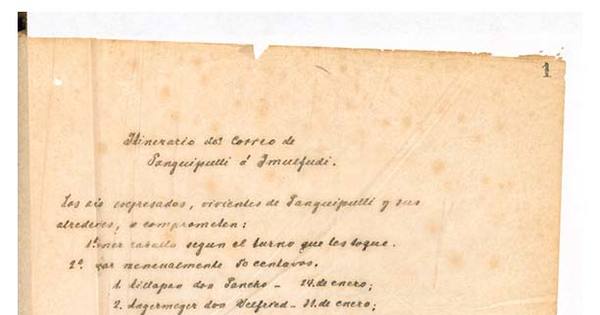 1
Itinerario del Correo de
Panguipulli á Imulfudi.
Los expresados, vivientes de Panguipulli y sus
alrededores, comprometen:
1º caballo segun el turno que les toque.
2º mensualmente 50 centavos.
1. Millapan don Pancho - 24. de enero;
2. don Wilfred - 31. de enero;